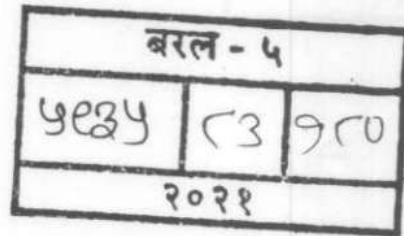 बरल - ५
५९३५ ८३ १८०
२०२१